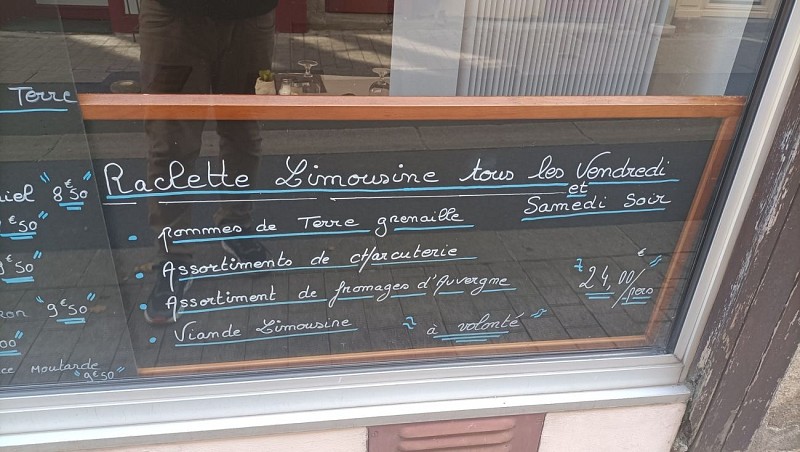 Terre
"8€50"
€50"
€50"
"9€50"
Moutarde
"9€50"
Raclette Limousine tous les Vendredi
et
Samedi Soir
pommes de Terre grenaille
Assortiments de charcuterie
Assortiment de fromages d'Auvergne
Viande Limousine
à volonté
24,00€/pers